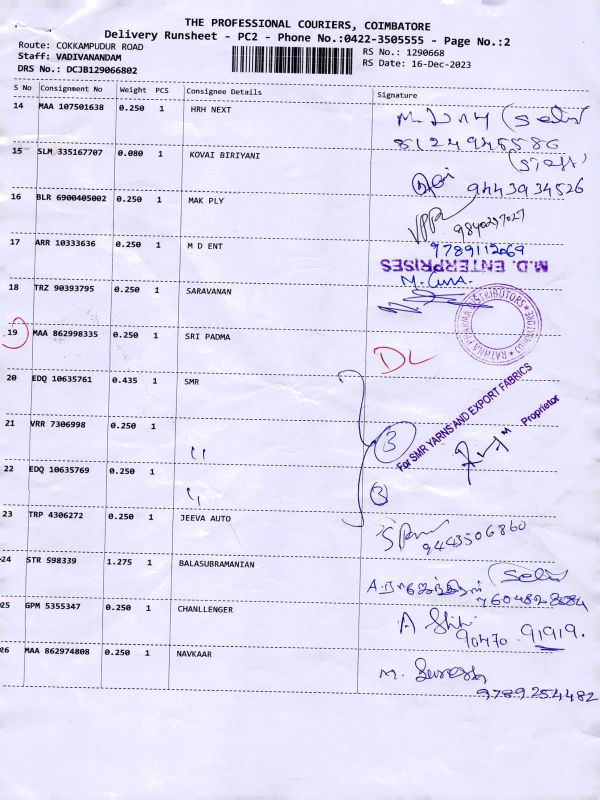 THE PROFESSIONAL COURIERS, COIMBATORE
Delivery Runsheet - PC2 - Phone No.:0422-3505555 - Page No.:2
Route: COKKAMPUDUR ROAD
Staff: VADIVANANDAM
DRS No.: DCJB129066802
RS No.: 1290668
RS Date: 16-Dec-2023
S No Consignment No Weight PCS Consignee Details Signature
14 MAA 107501638 0.250 1 HRH NEXT
15 SLM 335167707 0.080 1 KOVAI BIRIYANI
9443934526
16 BLR 6900405002 0.250 1 MAK PLY
9840297027
17 ARR 10333636 0.250 1 M D ENT
9789112069
M.D. ENTERPRISES
18 TRZ 90393795 0.250 1 SARAVANAN
19 MAA 862998335 0.250 1 SRI PADMA DL
20 EDQ 10635761 0.435 1 SMR
For SMR YARNS AND EXPORT FABRICS
Proprietor
21 VRR 7306998 0.250 1 " 3
22 EDQ 10635769 0.250 1 " 3
23 TRP 4306272 0.250 1 JEEVA AUTO
9443506860
24 STR 598339 1.275 1 BALASUBRAMANIAN
25 GPM 5355347 0.250 1 CHANLLENGER
90470 91919.
26 MAA 862974808 0.250 1 NAVKAAR M. Suresh
9789254482